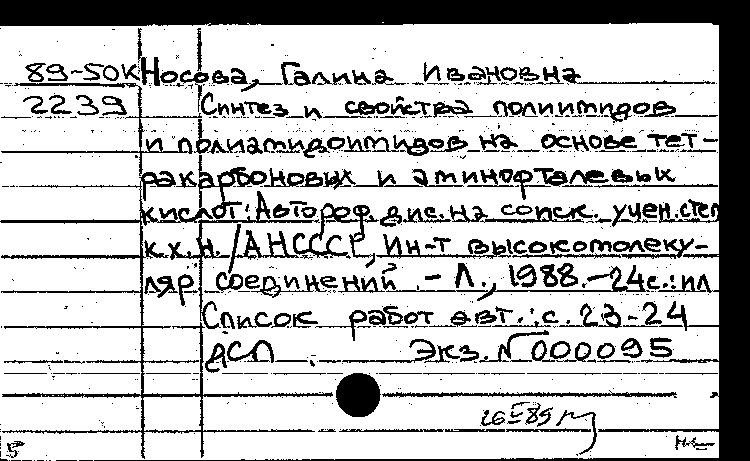 89-50К Носова, Галина Ивановна
2239 Синтез и свойства полиимидов
и полиамидоимидов на основе тет-
ракарбоновых и аминофталевых
кислот: Автореф. дис. на соиск. учен. степ
к.х.н. /АН СССР, Ин-т высокомолеку-
ляр. соединений. - Л., 1988. - 24с.: ил
Список работ авт.: с. 23-24
ДСП. Экз. № 000095
5